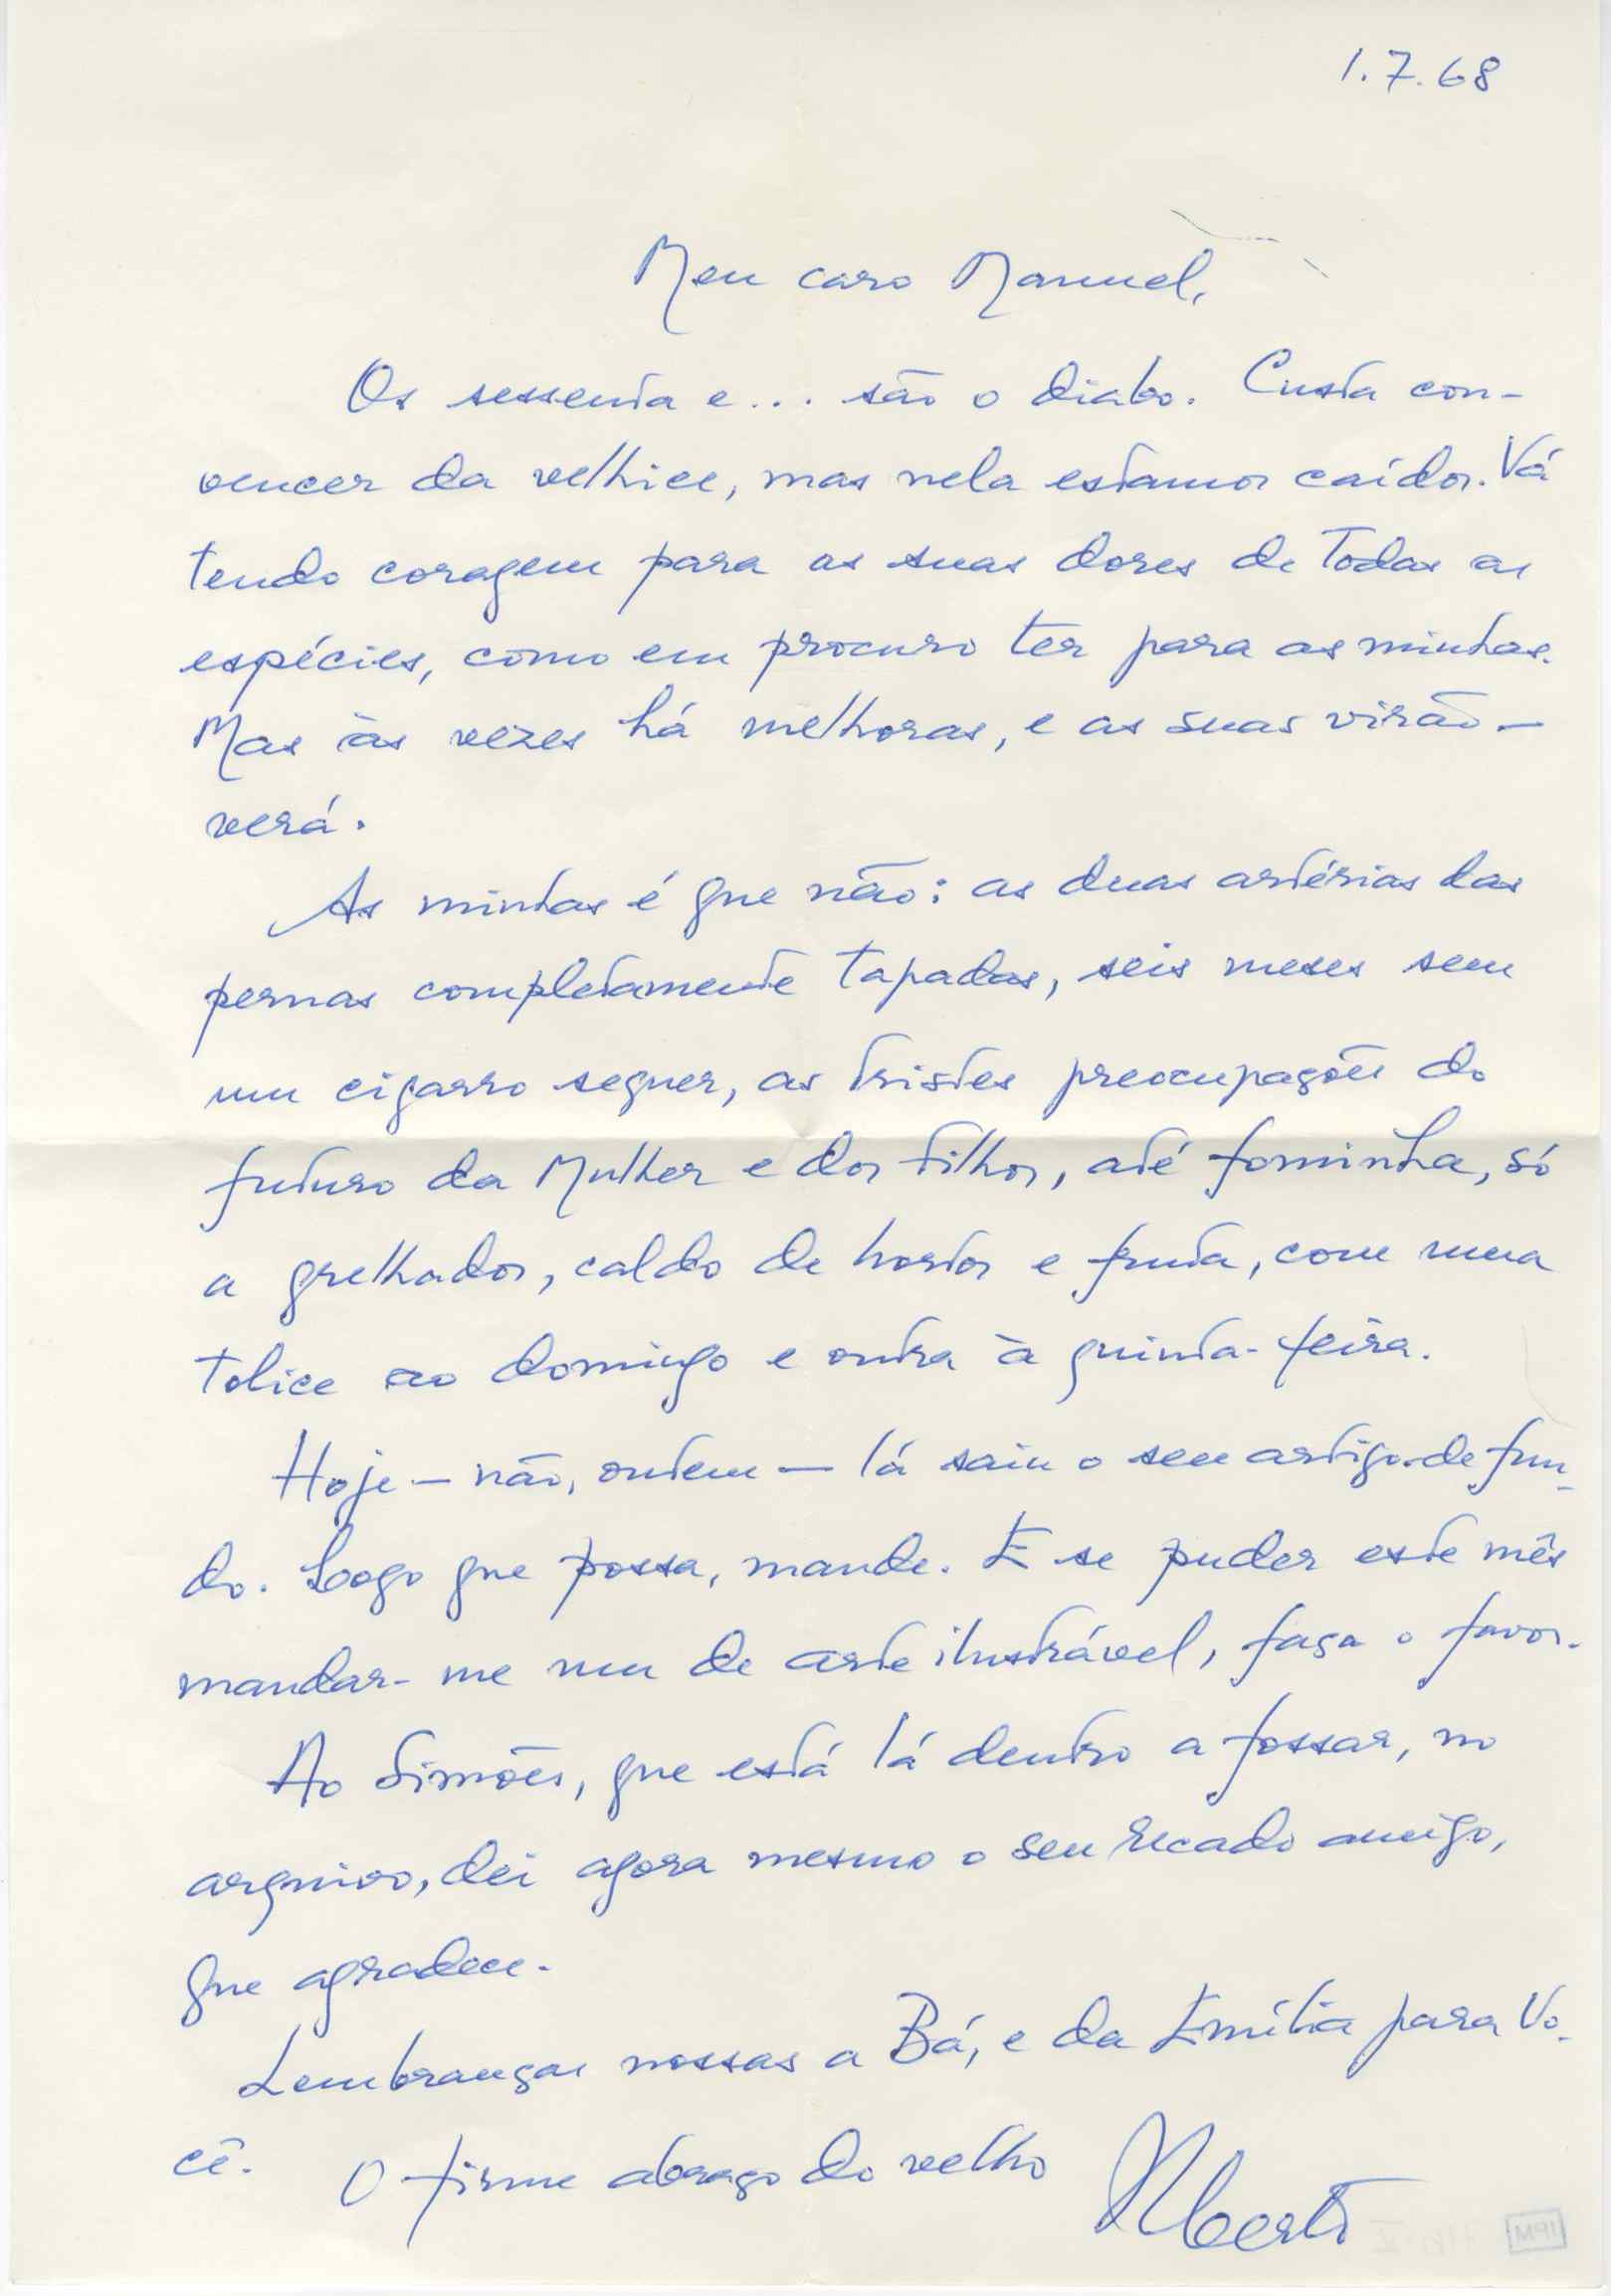 1.7.68
Meu caro Manuel,
Os sessenta e... são o diabo. Custa con-
vencer da velhice, mas nela estamos caídos. Vá
tendo coragem para as suas dores de todas as
espécies, como eu procuro ter para as minhas.
Mas às vezes há melhoras, e as suas virão —
verá.
As minhas é que não: as duas artérias das
pernas completamente tapadas, seis meses sem
um cigarro sequer, as tristes preocupações do
futuro da Mulher e dos filhos, até fominha, só
a grelhados, caldo de hortos e fruta, com uma
tolice ao domingo e outra à quinta-feira.
Hoje — não, ontem — lá saiu o seu artigo de fun-
do. Logo que possa, mande. E se puder este mês
mandar-me um de arte ilustrável, faça o favor.
Ao Simões, que está lá dentro a fossar, no
arquivo, dei agora mesmo o seu recado amigo,
que agradece.
Lembranças nossas a Bá, e da Emília para Vo-
cê. O firme abraço do velho
Alberto
IPM